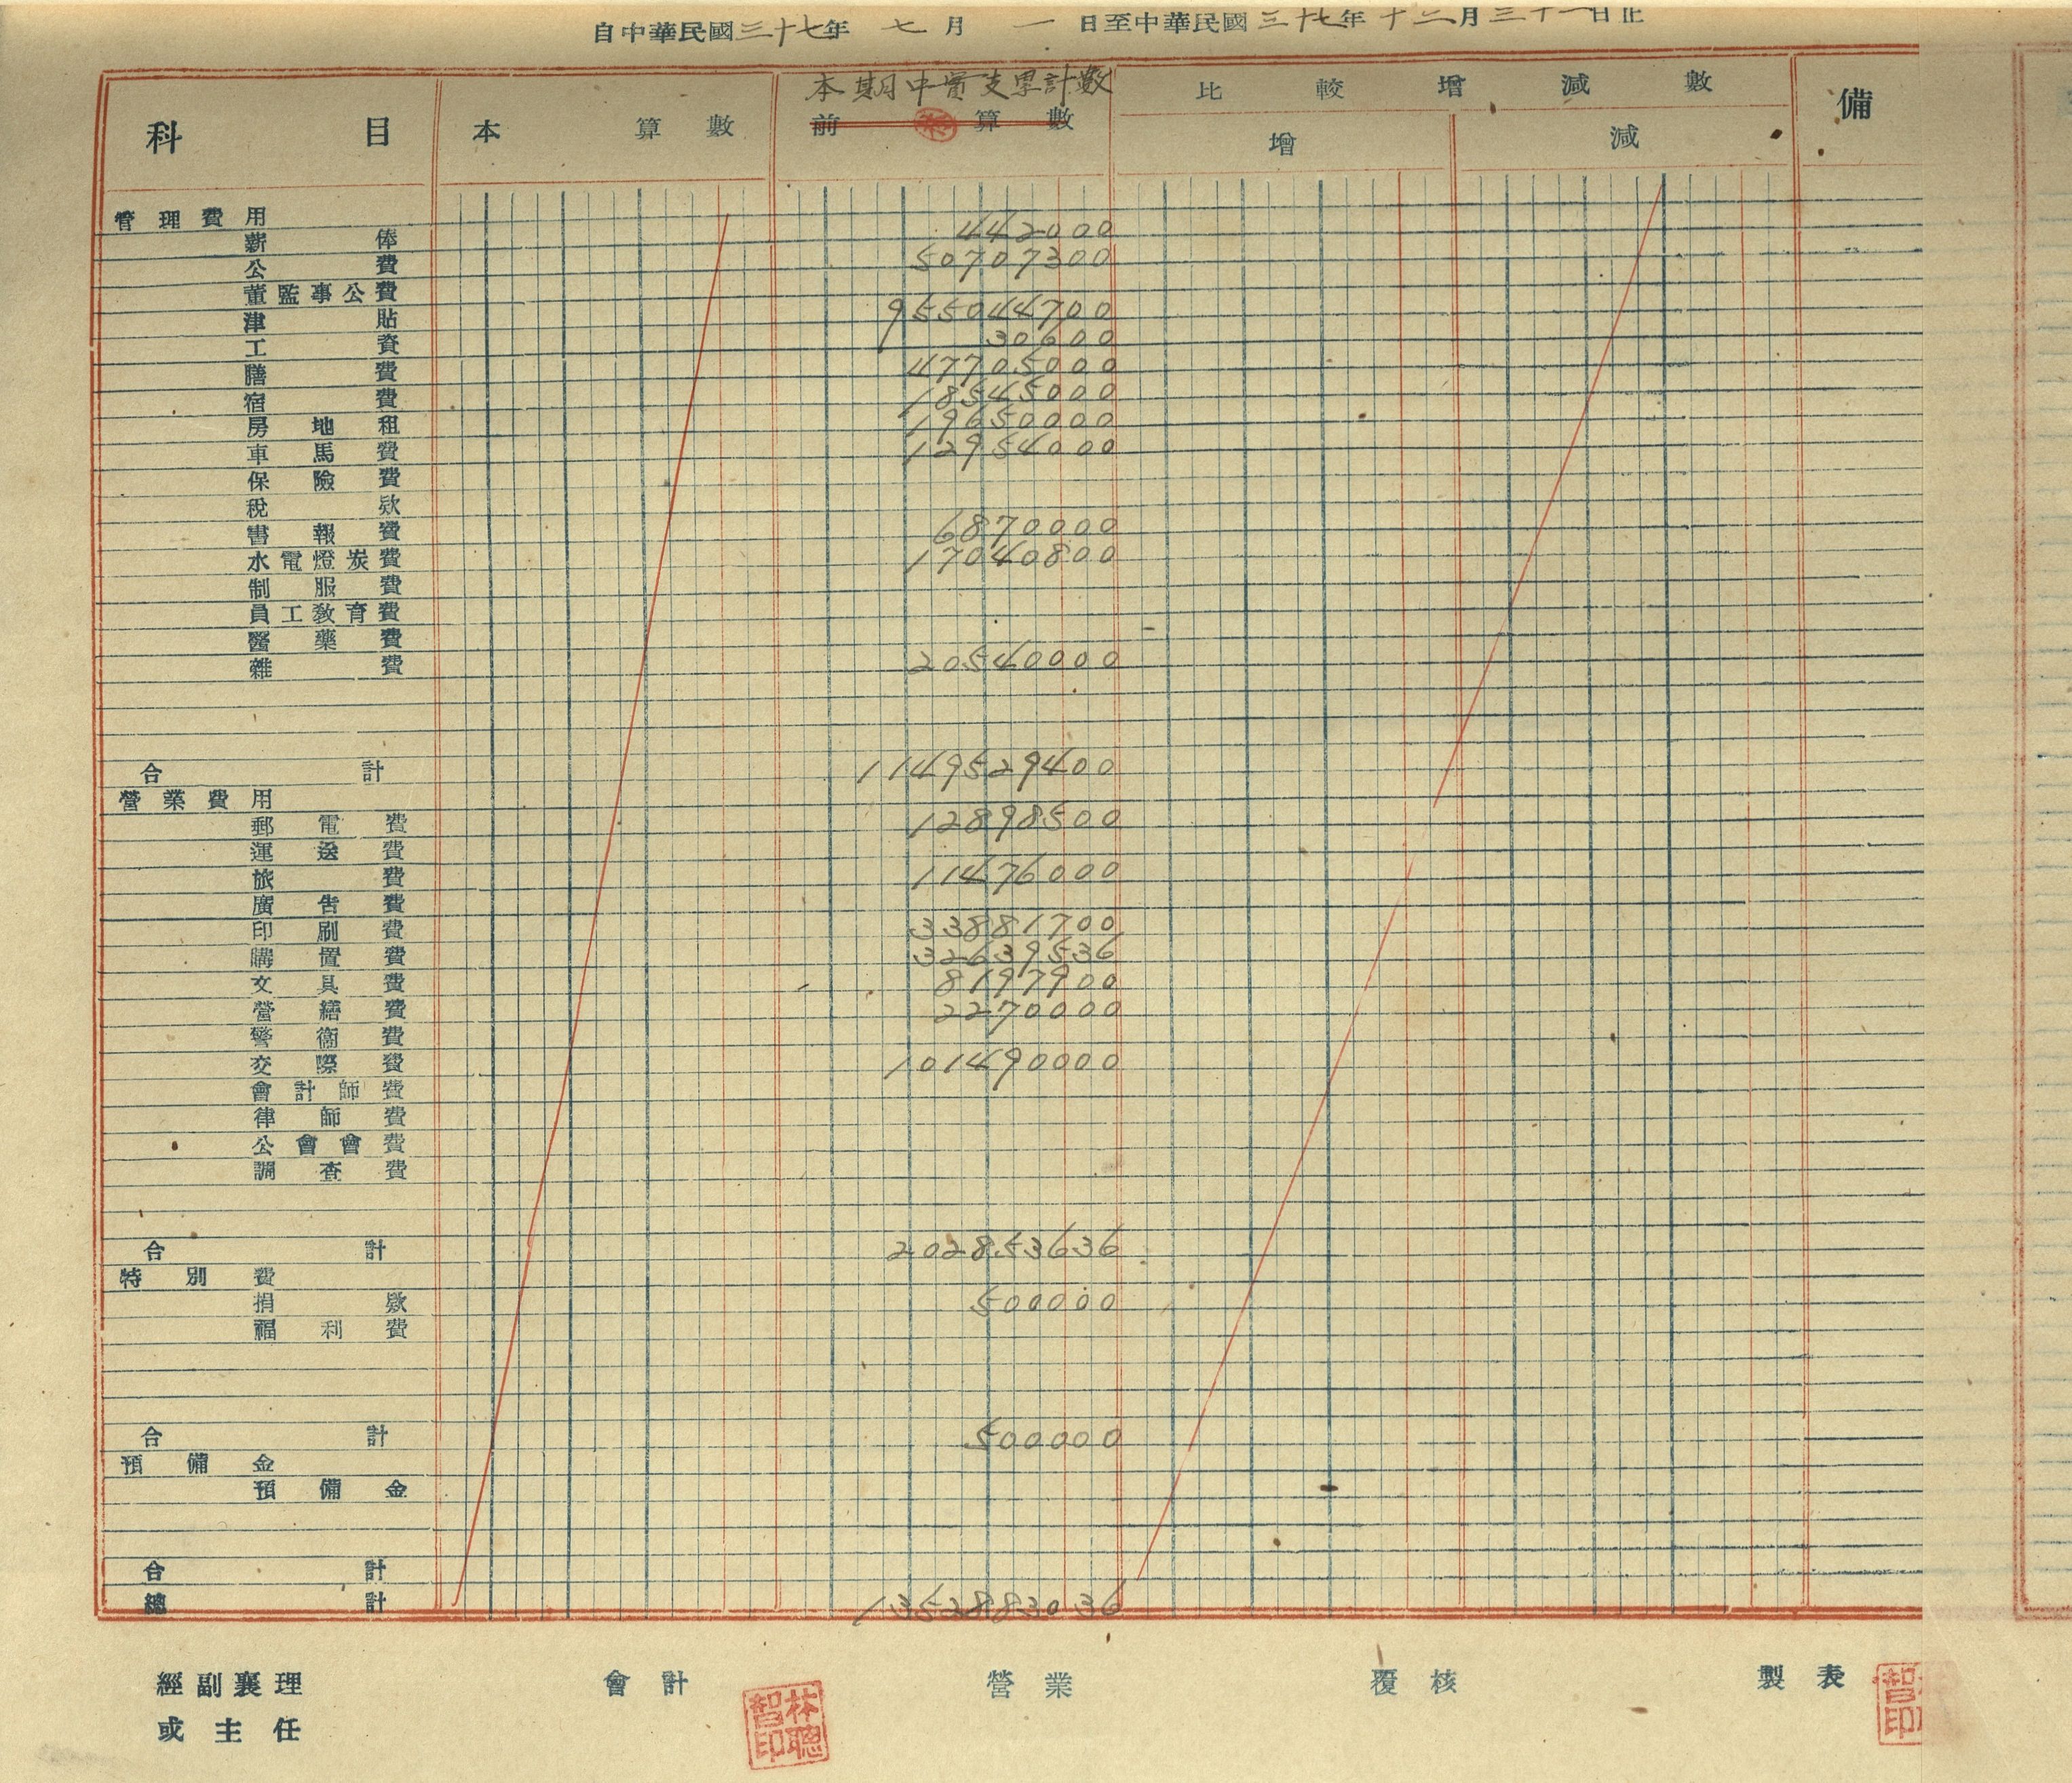 自中華民國三十七年 七月 一日至中華民國三十七年十二月三十一日止
科目 本 算數 本期中實支累計數 比較增減數 備
前 算數 增 減
管理費用
薪俸 442000
公費 50707300
董監事公費
津貼 955044700
工資 30600
膳費 47705000
宿費 18545000
房地租 19650000
車馬費 12954000
保險費
稅欵
書報費 6870000
水電燈炭費 17040800
制服費
員工教育費
醫藥費
雜費 20540000
合計 1149529400
營業費用
郵電費 12898500
運送費
旅費 11476000
廣告費
印刷費 33881700
購置費 32639536
文具費 8197900
營繕費 2270000
警衞費
交際費 101490000
會計師費
律師費
公會會費
調查費
合計 202853636
特別費
捐欵 500000
福利費
合計 500000
預備金
預備金
合計
總計 1352883036
經副襄理 會計 營業 覆核 製表
或主任
林聰智印
智印